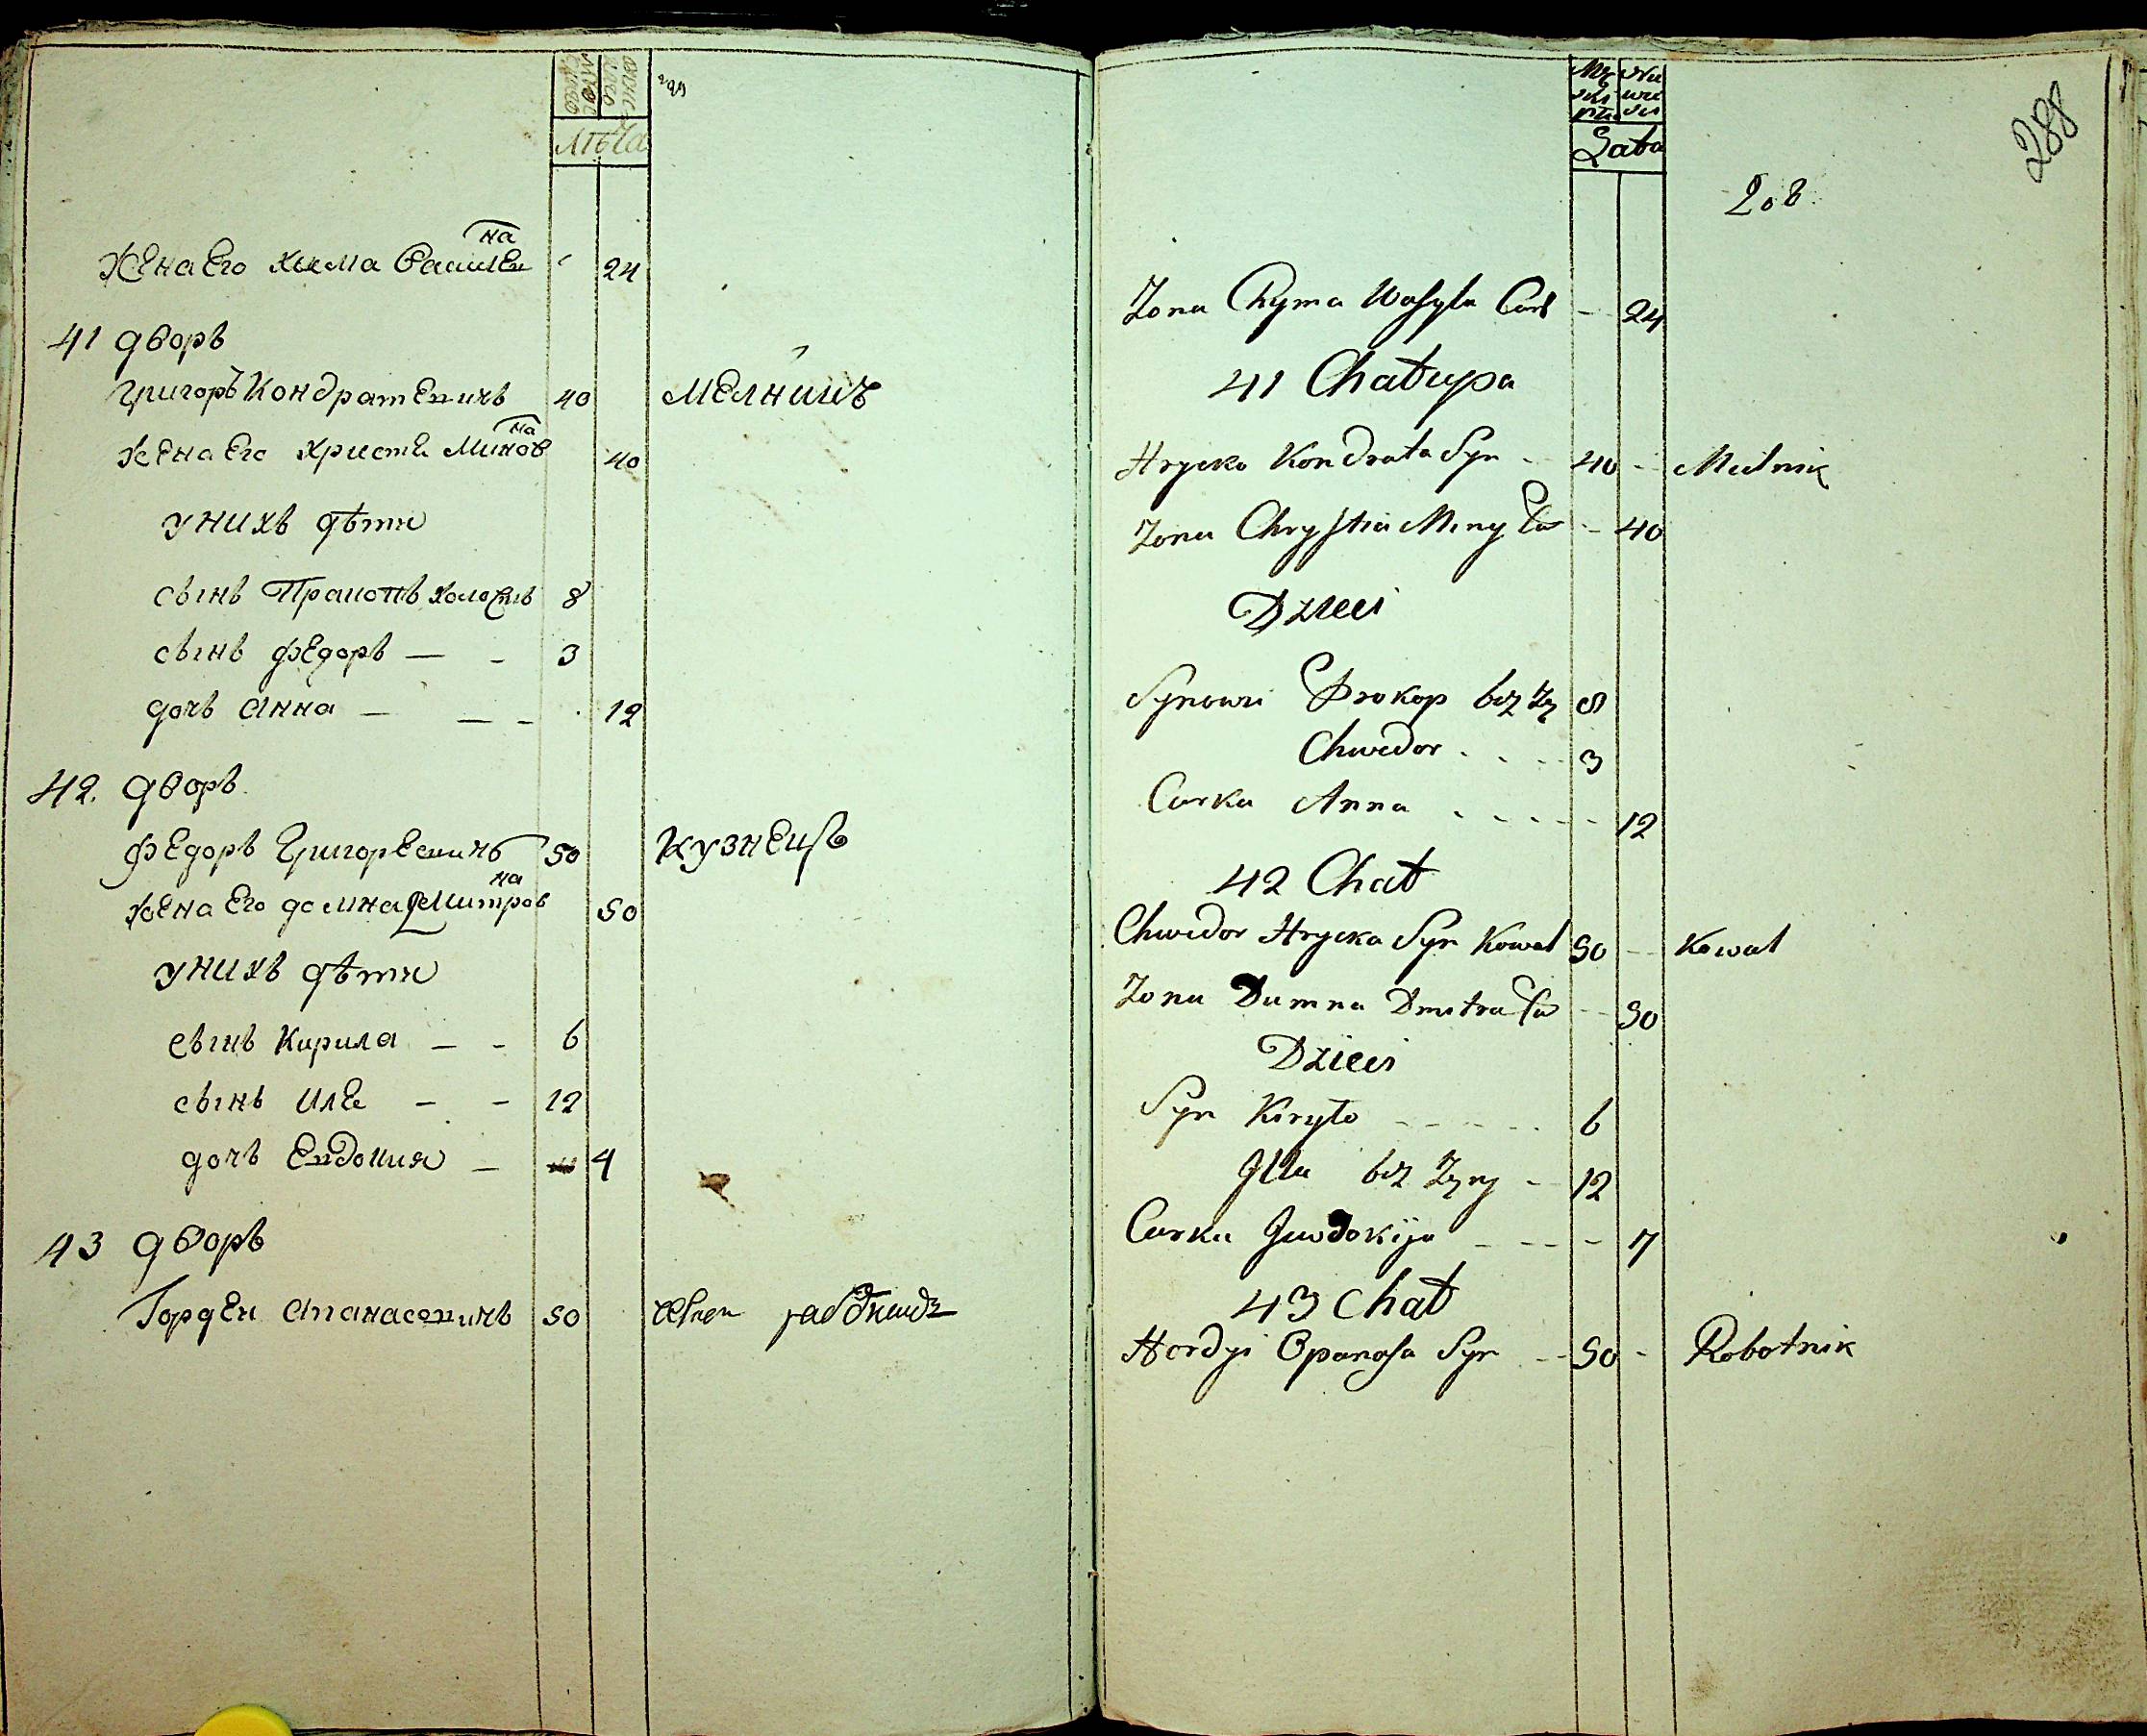 мужеска
женска
лѣта
на
жена его хима василев 24
41 дворъ
григоръ кондратевичъ 40 мелникъ
на
жена его христя Минов 40
у нихъ дѣти
сынъ Пракопъ холостъ 8
сынъ федоръ — - 3
дочь анна — — - 12
42. дворъ
федоръ григоревичъ 50 кузнецъ
на
жена его домна дмитров 50
у нихъ дѣти
сынъ Кирила — - 6
сынъ иля - - 12
дочь Евдокия — 4
43 дворъ
Гордей апанасовичъ 50
288
Lata
Żona Chyma Wasyla Cór - 24
41 Chałupa
Hrycko Kondrata Syn - 40 - Mielnik
Żona Chrystia Miny Có - 40
Dzieci
Synowie Prokop bez Żo 8
Chwedor . . . - 3
Curka Anna . . . . - 12
42 Chat
Chwedor Hrycka Syn Kowal 50 - Kowal
Żona Dumna Dmitra Có - 50
Dzieci
Syn Kiryło - - - - 6
Jlia bez Żony - 12
Curka Juwdokija - - - - 7
43 Chat
Hordyi Opanasa Syn - 50 - Robotnik